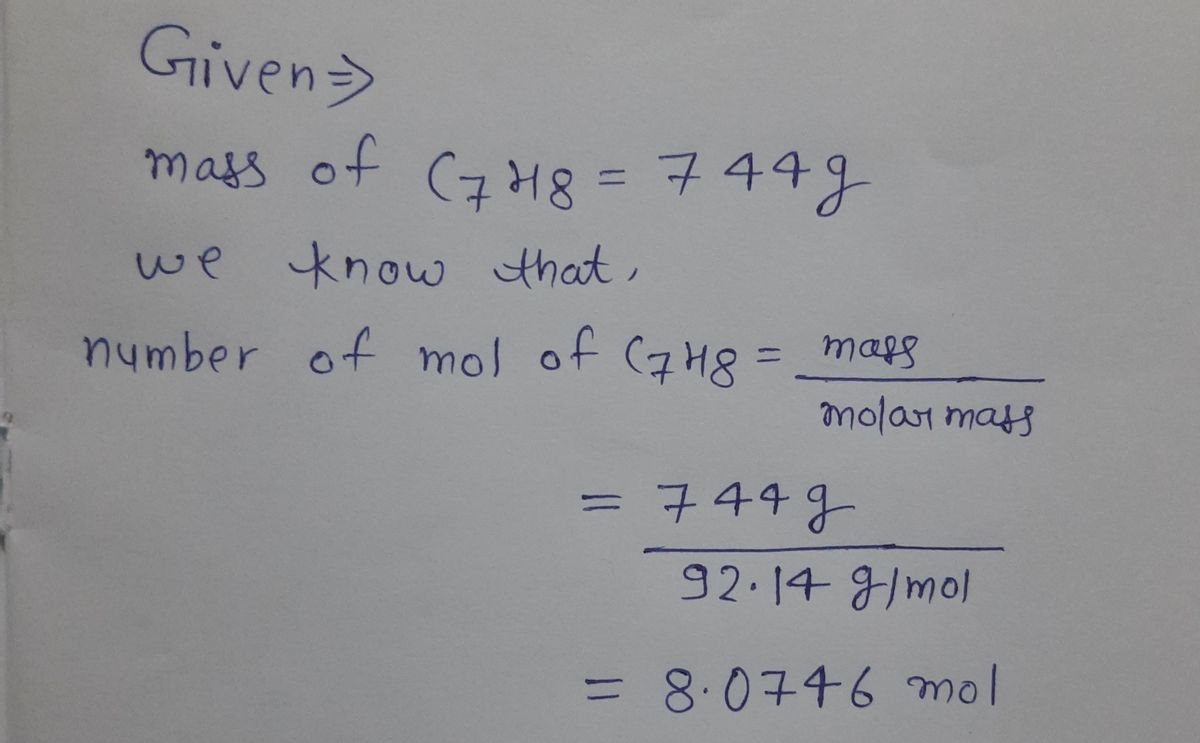 Given⇒
mass of C7H8 = 744g
we know that,
number of mol of C7H8 = mass
molar mass
= 744g
92.14 g/mol
= 8.0746 mol